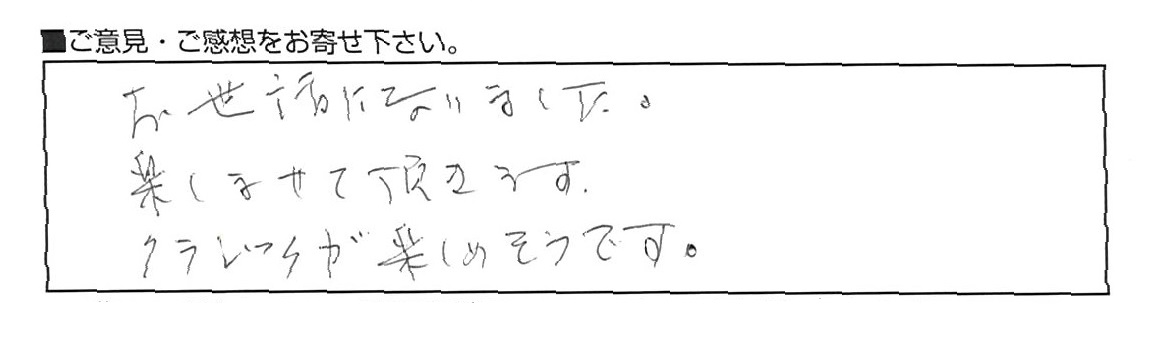 ■ご意見・ご感想をお寄せ下さい。
お世話になりました。
楽しませて頂きます.
クラシックが楽しめそうです。